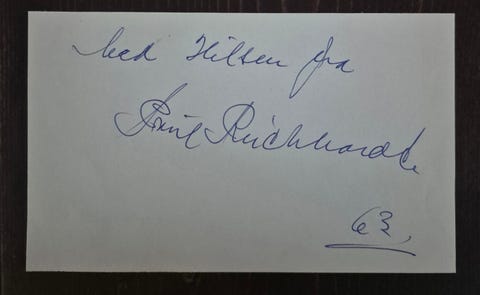 Med Hilsen fra
Poul Reichhardt
63.